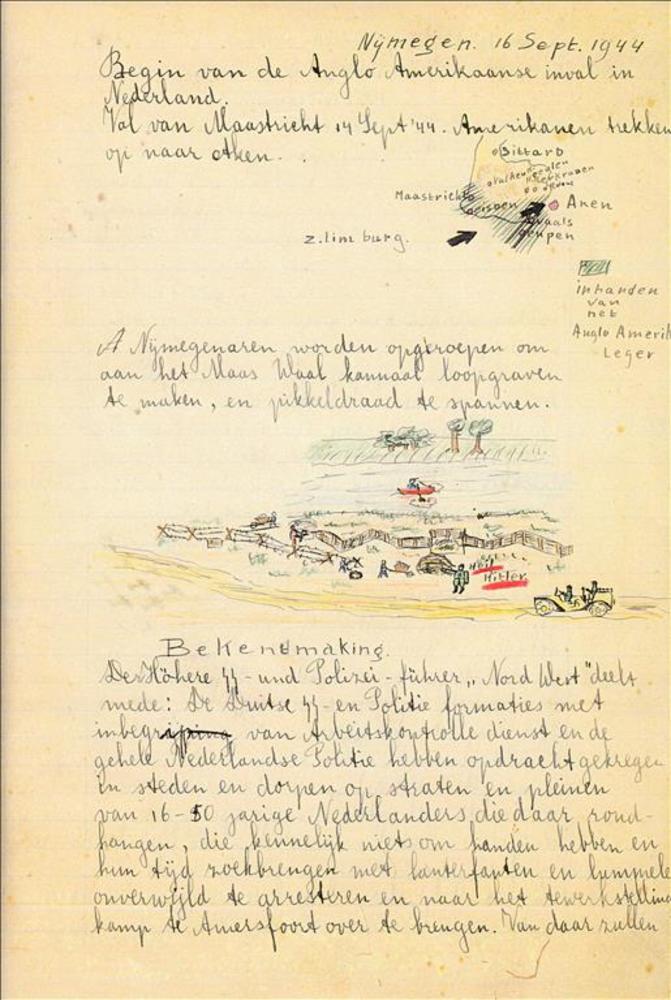 Nijmegen. 16 Sept. 1944
Begin van de Anglo Amerikaanse inval in
Nederland.
Val van Maastricht 14 Sept '44. Amerikanen trekken
op naar Aken.
Sittard
Valkenburg
Heerlen
Kerkrade
Maastricht
Aken
Vaals
Eupen
z. limburg.
in handen
van
het
Anglo Amerik
Leger
Nijmegenaren worden opgeroepen om
aan het Maas Waal kannaal loopgraven
te maken, en pikkeldraad te spannen.
Heil
Hitler
Bekendmaking.
Der Höhere SS- und Polizei-führer „Nord West" deelt
mede: De Duitse SS- en Politie formaties met
inbegrijping van Arbeitskontrolle dienst en de
gehele Nederlandse Politie hebben opdracht gekregen
in steden en dorpen op straten en pleinen
van 16-50 jarige Nederlanders die daar rond-
hangen, die kennelijk niets om handen hebben en
hun tijd zoekbrengen met lanterfanten en lummele
onverwijld te arresteren en naar het tewerkstelling
kamp te Amersfoort over te brengen. Van daar zullen